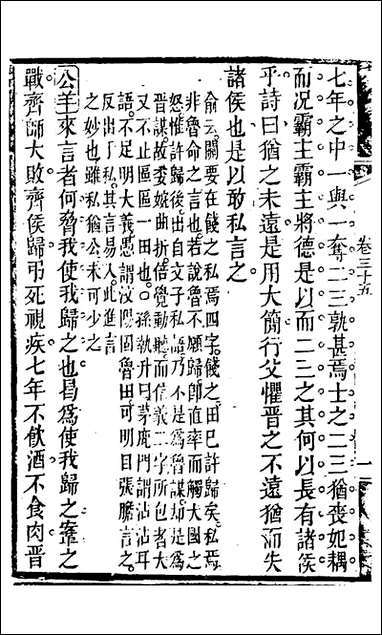 七年之中一與一奪二三孰甚焉士之二三猶喪妃耦
而况霸主霸主將德是以而二三之其何以長有諸侯
乎詩曰猶之未遠是用大簡行父懼晋之不遠猶而失
諸侯也是以敢私言之
俞云關要在餞之私焉四字餞之田巳許歸矣私焉
非魯命之言也若說魯不願歸卽直率而觸大國之
怒惟許歸後出自文子私語乃不是爲魯謀却是爲
晋謀故委婉曲折倍覺動聽而信義二字所包者大
又不止區區一田也 孫執升曰茅鹿門謂沾沾耳
語不足明大義愚謂汶陽固魯田可明目張膽言之
反出于私其言易入此進言
之妙也雖私猶公未可少之
公羊來言者何脅我使我歸之也曷爲使我歸之鞌之
戰齊師大敗齊侯歸弔死視疾七年不飮酒不食肉晋
卷三十五
一